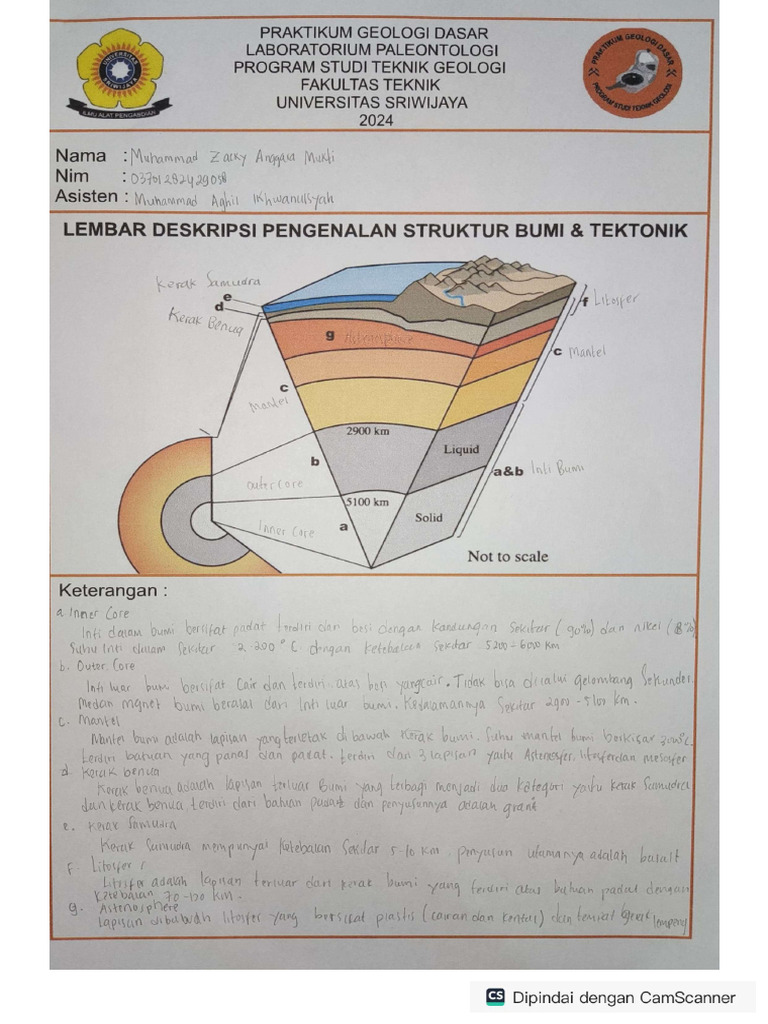 PRAKTIKUM GEOLOGI DASAR
LABORATORIUM PALEONTOLOGI
PROGRAM STUDI TEKNIK GEOLOGI
FAKULTAS TEKNIK
UNIVERSITAS SRIWIJAYA
2024
UNIVERSITAS SRIWIJAYA
ILMU ALAT PENGABDIAN
PRAKTIKUM GEOLOGI DASAR
PROGRAM STUDI TEKNIK GEOLOGI
Nama : Muhammad Zacky Anggara Mukti
Nim : 03701282429058
Asisten : Muhammad Aghil Ikhwanulsyah
LEMBAR DESKRIPSI PENGENALAN STRUKTUR BUMI & TEKTONIK
Kerak Samudra
e
d
Kerak Benua
f Litosfer
g Astenosphere
c Mantel
c
Mantel
2900 km
Liquid
b
a&b Inti Bumi
outer core
5100 km
Solid
Inner Core
a
Not to scale
Keterangan :
a. Inner Core
Inti dalam bumi bersifat padat terdiri dari besi dengan kandungan sekitar (90%) dan nikel (8%)
Suhu inti dalam sekitar 2.200°C dengan ketebalan sekitar 5200-6000 km
b. Outer Core
Inti luar bumi bersifat cair dan terdiri atas besi yang cair. Tidak bisa dilalui gelombang Sekunder.
Medan mgnet bumi berasal dari inti luar bumi. Kedalamannya sekitar 2900 - 5100 km.
c. Mantel
Mantel bumi adalah lapisan yang terletak di bawah kerak bumi. Suhu mantel bumi berkisar 3000°C.
terdiri batuan yang panas dan padat. terdiri dari 3 lapisan yaitu Astenosfer, litosfer dan mesosfer
d. Kerak benua
Kerak benua adalah lapisan terluar Bumi yang terbagi menjadi dua kategori yaitu kerak Samudra
dan kerak benua, terdiri dari batuan padat dan penyusunnya adalah granit
e. Kerak Samudra
Kerak Samudra mempunyai ketebalan sekitar 5-10 km, penyusun utamanya adalah basalt
f. Litosfer
Litosfer adalah lapisan terluar dari kerak bumi yang terdiri atas batuan padat dengan
ketebalan 70-120 km.
g. Astenosphere
Lapisan dibawah litosfer yang bersifat plastis (cairan dan kental) dan tempat gerak lempeng
CS Dipindai dengan CamScanner